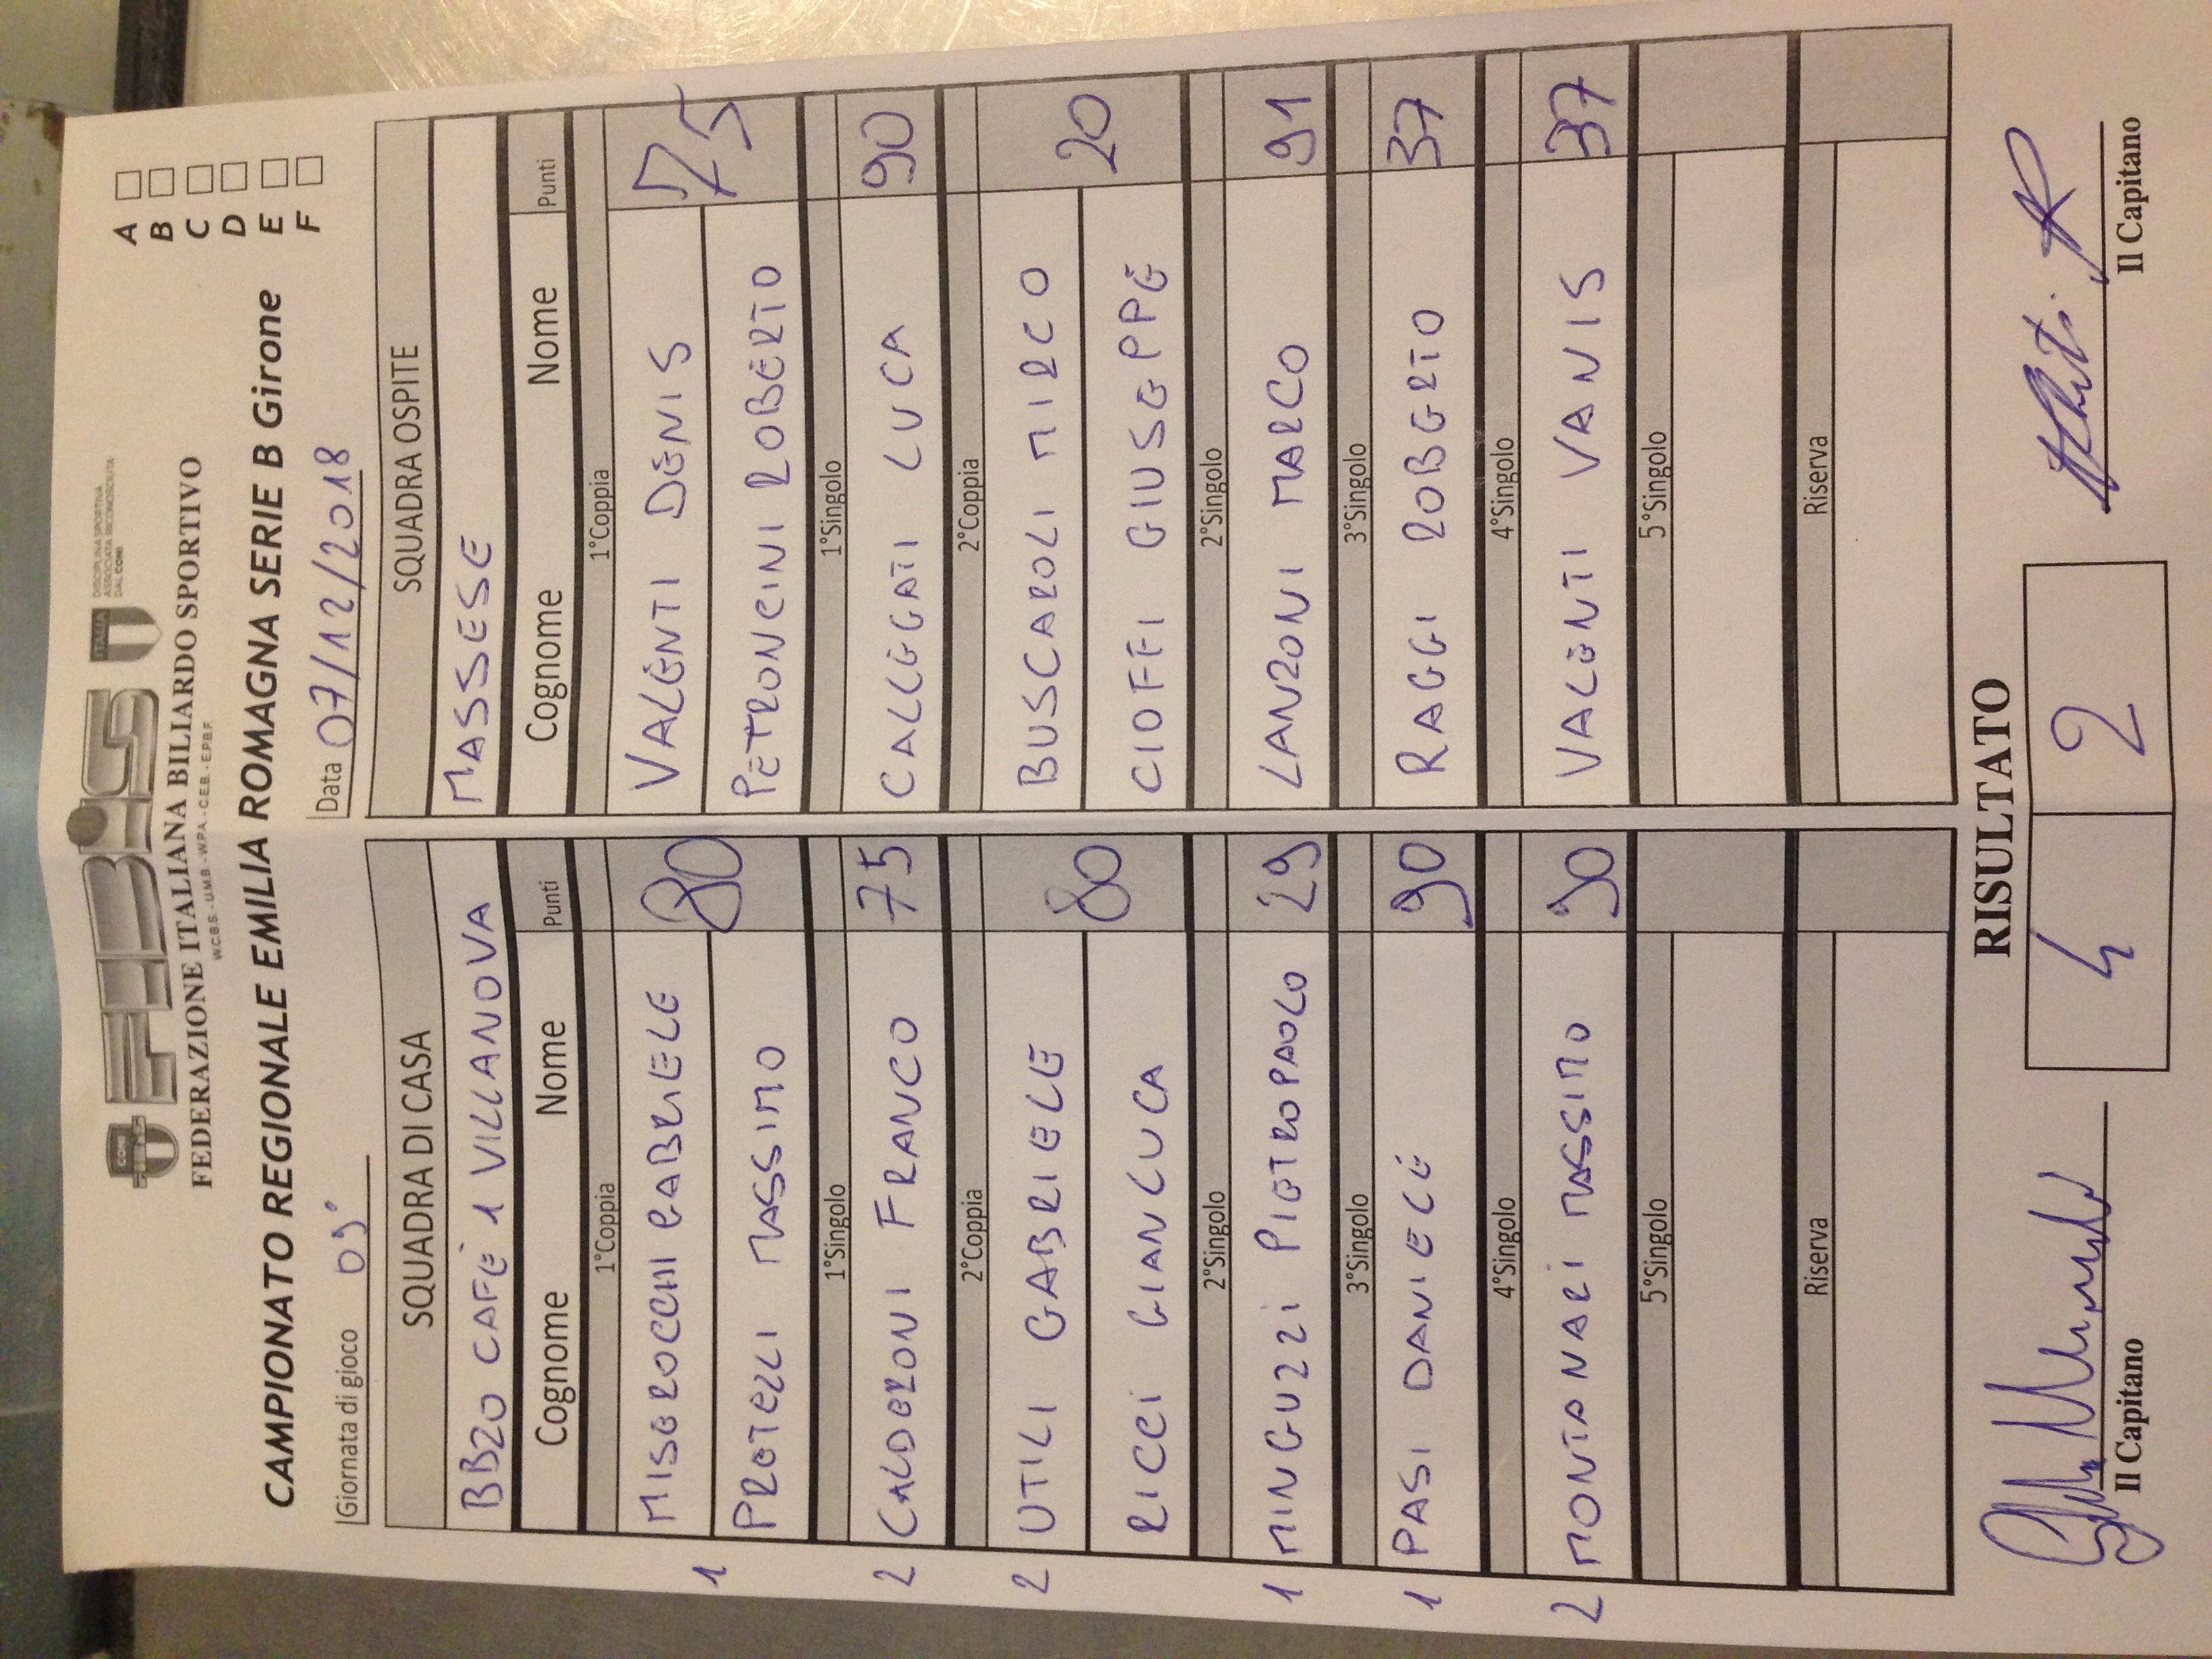 FIBiS
CONI
ITALIA
DISCIPLINA SPORTIVA
ASSOCIATA RICONOSCIUTA
DAL CONI
FEDERAZIONE ITALIANA BILIARDO SPORTIVO
W.C.B.S. - U.M.B. - W.P.A. - C.E.B. - E.P.B.F.
CAMPIONATO REGIONALE EMILIA ROMAGNA SERIE B Girone
A
B
C
D
E
F
Giornata di gioco 09°
Data 07/12/2018
SQUADRA DI CASA
BBZO CAFÈ 1 VILLANOVA
Cognome Nome Punti
1°Coppia
1 MISEROCCHI GABRIELE 80
PROTELLI MASSIMO
1°Singolo
2 CALDERONI FRANCO 75
2°Coppia
2 UTILI GABRIELE 80
RICCI GIANLUCA
2°Singolo
1 MINGUZZI PIETROPAOLO 29
3°Singolo
1 PASI DANIELE 90
4°Singolo
2 MONTANARI MASSIMO 90
5°Singolo
Riserva
SQUADRA OSPITE
MASSESE
Cognome Nome Punti
1°Coppia
VALENTI DENIS 75
PETRONCINI ROBERTO
1°Singolo
CALLEGATI LUCA 90
2°Coppia
BUSCAROLI MIRCO 20
CIOFFI GIUSEPPE
2°Singolo
LANZONI MARCO 91
3°Singolo
RAGGI ROBERTO 37
4°Singolo
VALENTI VANIS 37
5°Singolo
Riserva
RISULTATO
4 2
Il Capitano
Il Capitano